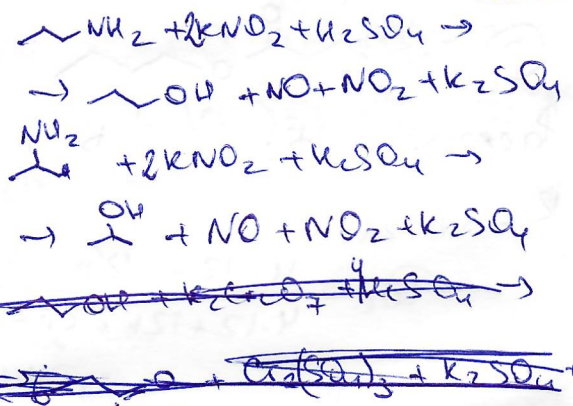 NH2 + 2KNO2 + H2SO4 →
→ OH + NO + NO2 + K2SO4
NH2
+ 2KNO2 + H2SO4 →
OH
→ + NO + NO2 + K2SO4
OH + K2Cr2O7 + 4H2SO4 →
→ O + Cr2(SO4)3 + K2SO4 +